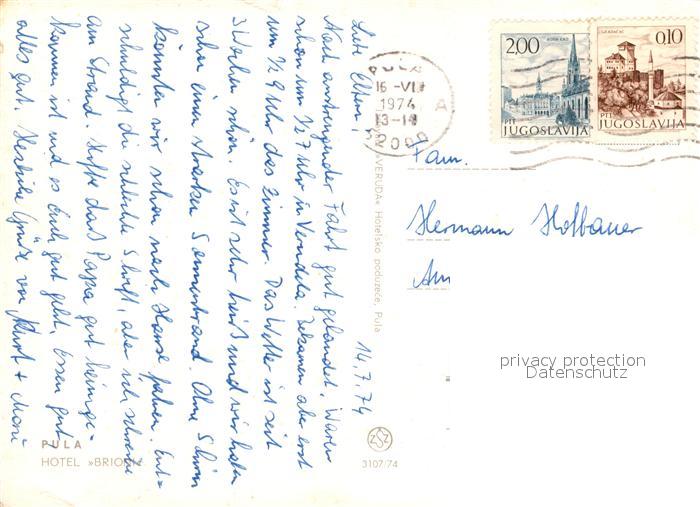 14.7.74
Liebe Eltern!
Nach anstrengender Fahrt gut gelandet. Waren
schon um ½ 7 Uhr in Verudela. Bekamen aber erst
um ½ 9 Uhr das Zimmer. Das Wetter ist seit
3 Wochen schön. Es ist sehr heiß und wir haben
schon einen starken Sonnenbrand. Ohne Schirm
könnten wir schon nach Hause fahren. Ent=
schuldigt die schlechte Schrift, aber ich schreibe
am Strand. Hoffe daß Papa gut heimge=
kommen ist und es Euch gut geht, Essen gut
alles gut. Herzliche Grüße von Kurt +
PULA
HOTEL »BRIONI«
»VERUDA« Hotelsko poduzeće, Pula
3107/74
PULA
16-VII
1974
13-14
2,00
PTT
JUGOSLAVIJA
GRADAČAC
0,10
PTT
JUGOSLAVIJA
Fam.
Hermann Hofbauer
Am
privacy protection
Datenschutz